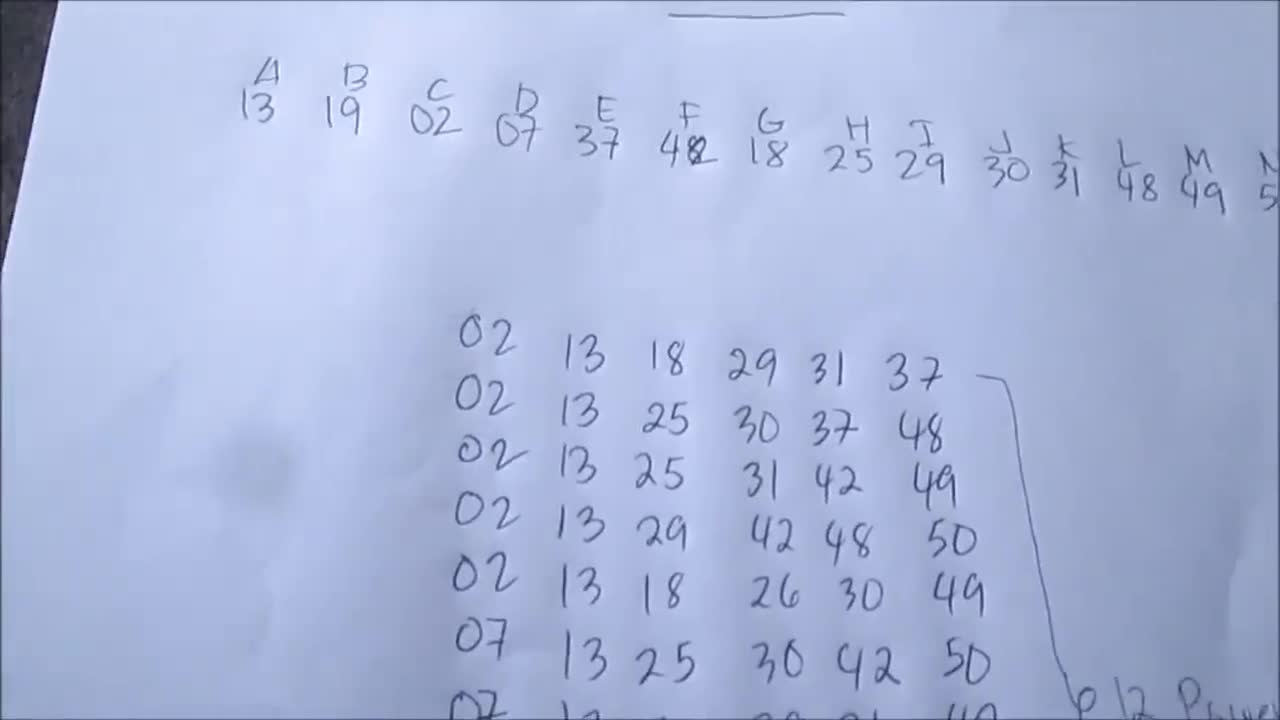 A B C D E F G H I J K L M N
13 19 02 07 37 42 18 25 29 30 31 48 49 5
02 13 18 29 31 37
02 13 25 30 37 48
02 13 25 31 42 49
02 13 29 42 48 50
02 13 18 26 30 49
07 13 25 30 42 50
07